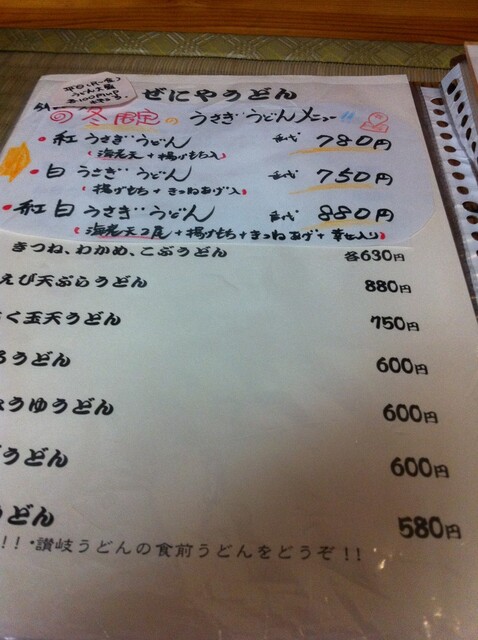 平日(月〜金)
うどん大盛
各100円UP
ぜにやうどん
冬限定の うさぎうどんメニュー!!
・紅うさぎうどん 各代 780円
(海老天+揚げもち入)
・白うさぎうどん 各代 750円
(揚げもち+きつねあげ入)
・紅白うさぎうどん 各代 880円
(海老天2尾+揚げもち+きつねあげ+幸せ入り)
きつね、わかめ、こぶうどん 各630円
えび天ぷらうどん 880円
く玉天うどん 750円
うどん 600円
ょうゆうどん 600円
うどん 600円
うどん 580円
!!・讃岐うどんの食前うどんをどうぞ!!